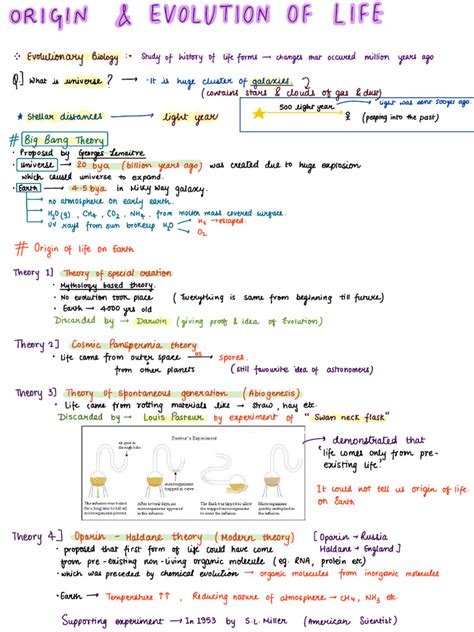 ORIGIN & EVOLUTION OF LIFE
Evolutionary Biology :- Study of history of life forms → changes that occured million years ago
Q] What is universe? → It is huge cluster of galaxies.
(contains stars & clouds of gas & dust)
light was sent 500 yrs ago
500 light year
(peeping into the past)
★ stellar distances → light year
# Big Bang Theory
• Proposed by Georges Lemaitre
• Universe → 20 bya (billion years ago) was created due to huge explosion
which caused universe to expand.
• Earth → 4.5 bya in Milky Way galaxy.
→ no atmosphere on early earth.
→ H2O(g), CH4, CO2, NH3, from molten mass covered surface.
→ UV rays from sun brokeup H2O → H2 → escaped.
→ O2
# Origin of life on Earth
Theory 1] Theory of special creation
• Mythology based theory.
• No evolution took place (Everything is same from beginning till future)
• Earth → 4000 yrs old
Discarded by → Darwin (giving proofs & idea of Evolution)
Theory 2] Cosmic Panspermia theory
• Life came from outer space as→ spores.
from other planets (still favourite idea of astronomers)
Theory 3] Theory of spontaneous generation (Abiogenesis)
• Life came from rotting materials like → straw, hay etc.
Discarded by → Louis Pasteur by experiment of "Swan neck flask"
Pasteur's Experiment
air gets in
through tube
microorganisms
trapped here
The infusion was boiled
for a long time to kill all
microorganisms present
After several days, no
microorganisms appeared
in the infusion.
The flask was tipped to allow
the trapped microorganisms
to enter the infusion.
Microorganisms
quickly multiplied in
the infusion.
→ demonstrated that
'life comes only from pre-
existing life.'
It could not tell us origin of life
on Earth
Theory 4] Oparin - Haldane theory (Modern theory) [Oparin → Russia
Haldane → England]
• proposed that first form of life could have come
from pre-existing non-living organic molecule (eg. RNA, protein etc)
• which was preceded by chemical evolution → organic molecules from inorganic molecules
• Earth → Temperature ↑↑, Reducing nature of atmosphere → CH4, NH3 etc
Supporting experiment → In 1953 by S.L. Miller (American Scientist)